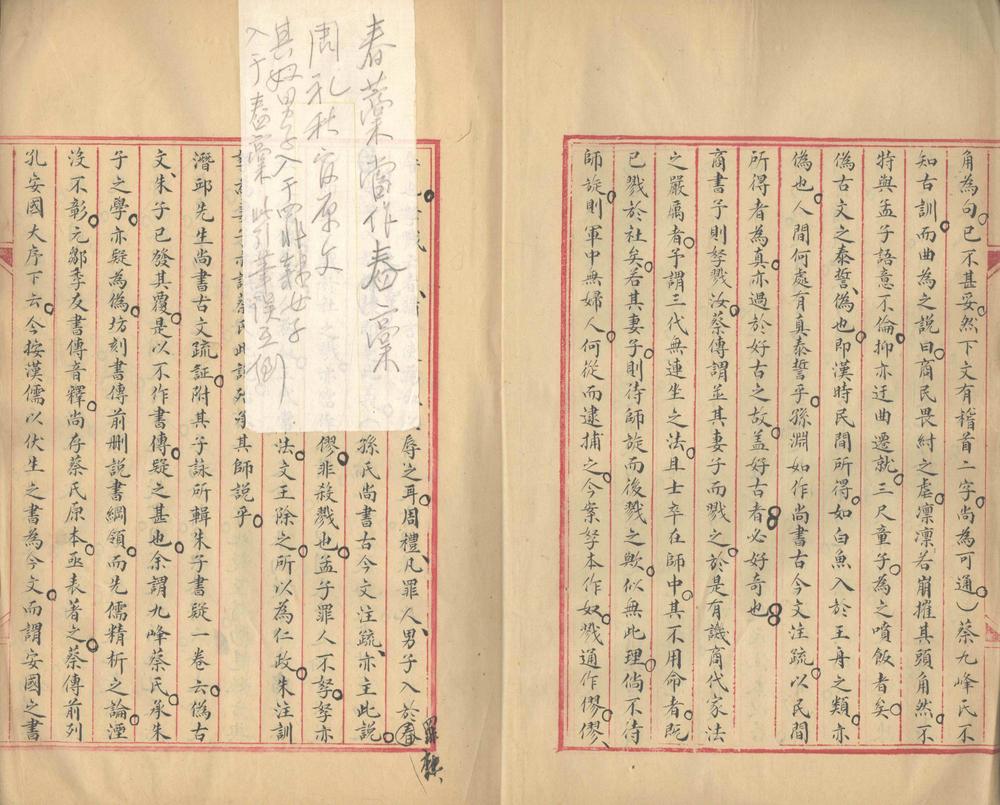 角為句已不甚妥然下文有稽首二字尚為可通）蔡九峰氏不
知古訓而曲為之說曰商民畏紂之虐凜凜若崩摧其頭角然不
特與孟子語意不倫抑亦迂曲遷就三尺童子為之噴飯者矣
偽古文之泰誓偽也即漢時民間所得如白魚入於王舟之類亦
偽也人間何處有真泰誓乎孫淵如作尚書古今文注疏以民間
所得者為真亦過於好古之故蓋好古者必好奇也
商書予則孥戮汝蔡傳謂並其妻子而戮之於是有譏商代家法
之嚴厲者予謂三代無連坐之法且士卒在師中其不用命者既
已戮於社矣若其妻子則待師旋而後戮之歟似無此理倘不待
師旋則軍中無婦人何從而逮捕之今案孥本作奴戮通作僇僇
春藁當作舂藁
周礼秋官原文
其奴男子入于罪隸女子
入于舂藁 此引華誤互倒
辱之耳周禮凡罪人男子入於舂
罪隸
孫氏尚書古今文注疏亦主此說
僇非殺戮也孟子罪人不孥孥亦
法文王除之所以為仁政朱注訓
其師說乎
潛邱先生尚書古文疏証附其子詠所輯朱子書疑一卷云偽古
文朱子已發其覆是以不作書傳疑之甚也余謂九峰蔡氏承朱
子之學亦疑為偽坊刻書傳前刪說書綱領而先儒精析之論湮
沒不彰元鄒季友書傳音釋尚存蔡氏原本亟表著之蔡傳前列
孔安國大序下云今按漢儒以伏生之書為今文而謂安國之書